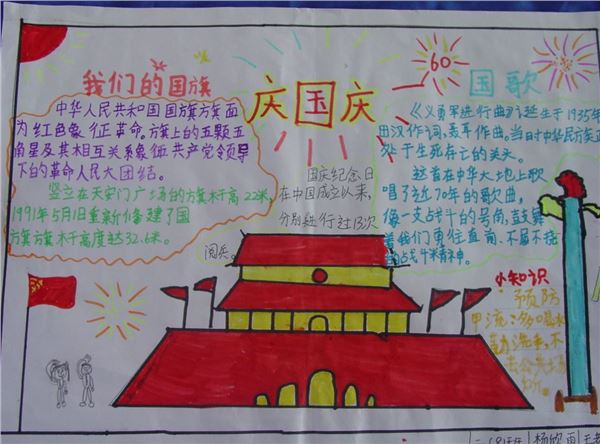 我们的国旗
中华人民共和国国旗旗面
为红色象征革命。旗上的五颗五
角星及其相互关系象征共产党领导
下的革命人民大团结。
竖立在天安门广场的旗杆高22米,
1991年5月1日重新修建了国
旗旗杆高度达32.6米。
庆国庆
60
国庆纪念日
在中国成立以来,
分别进行过13次
阅兵。
国歌
《义勇军进行曲》诞生于1935年
田汉作词,聂耳作曲,当时中华民族正
处于生死存亡的关头。
这首在中华大地上歌
唱了近70年的歌曲,
像一支战斗的号角,鼓舞
着我们勇往直前、不屈不挠
的战斗精神。
小知识
预防
甲流:多喝水
洗手,不
去公共场
所。
杨欣雨